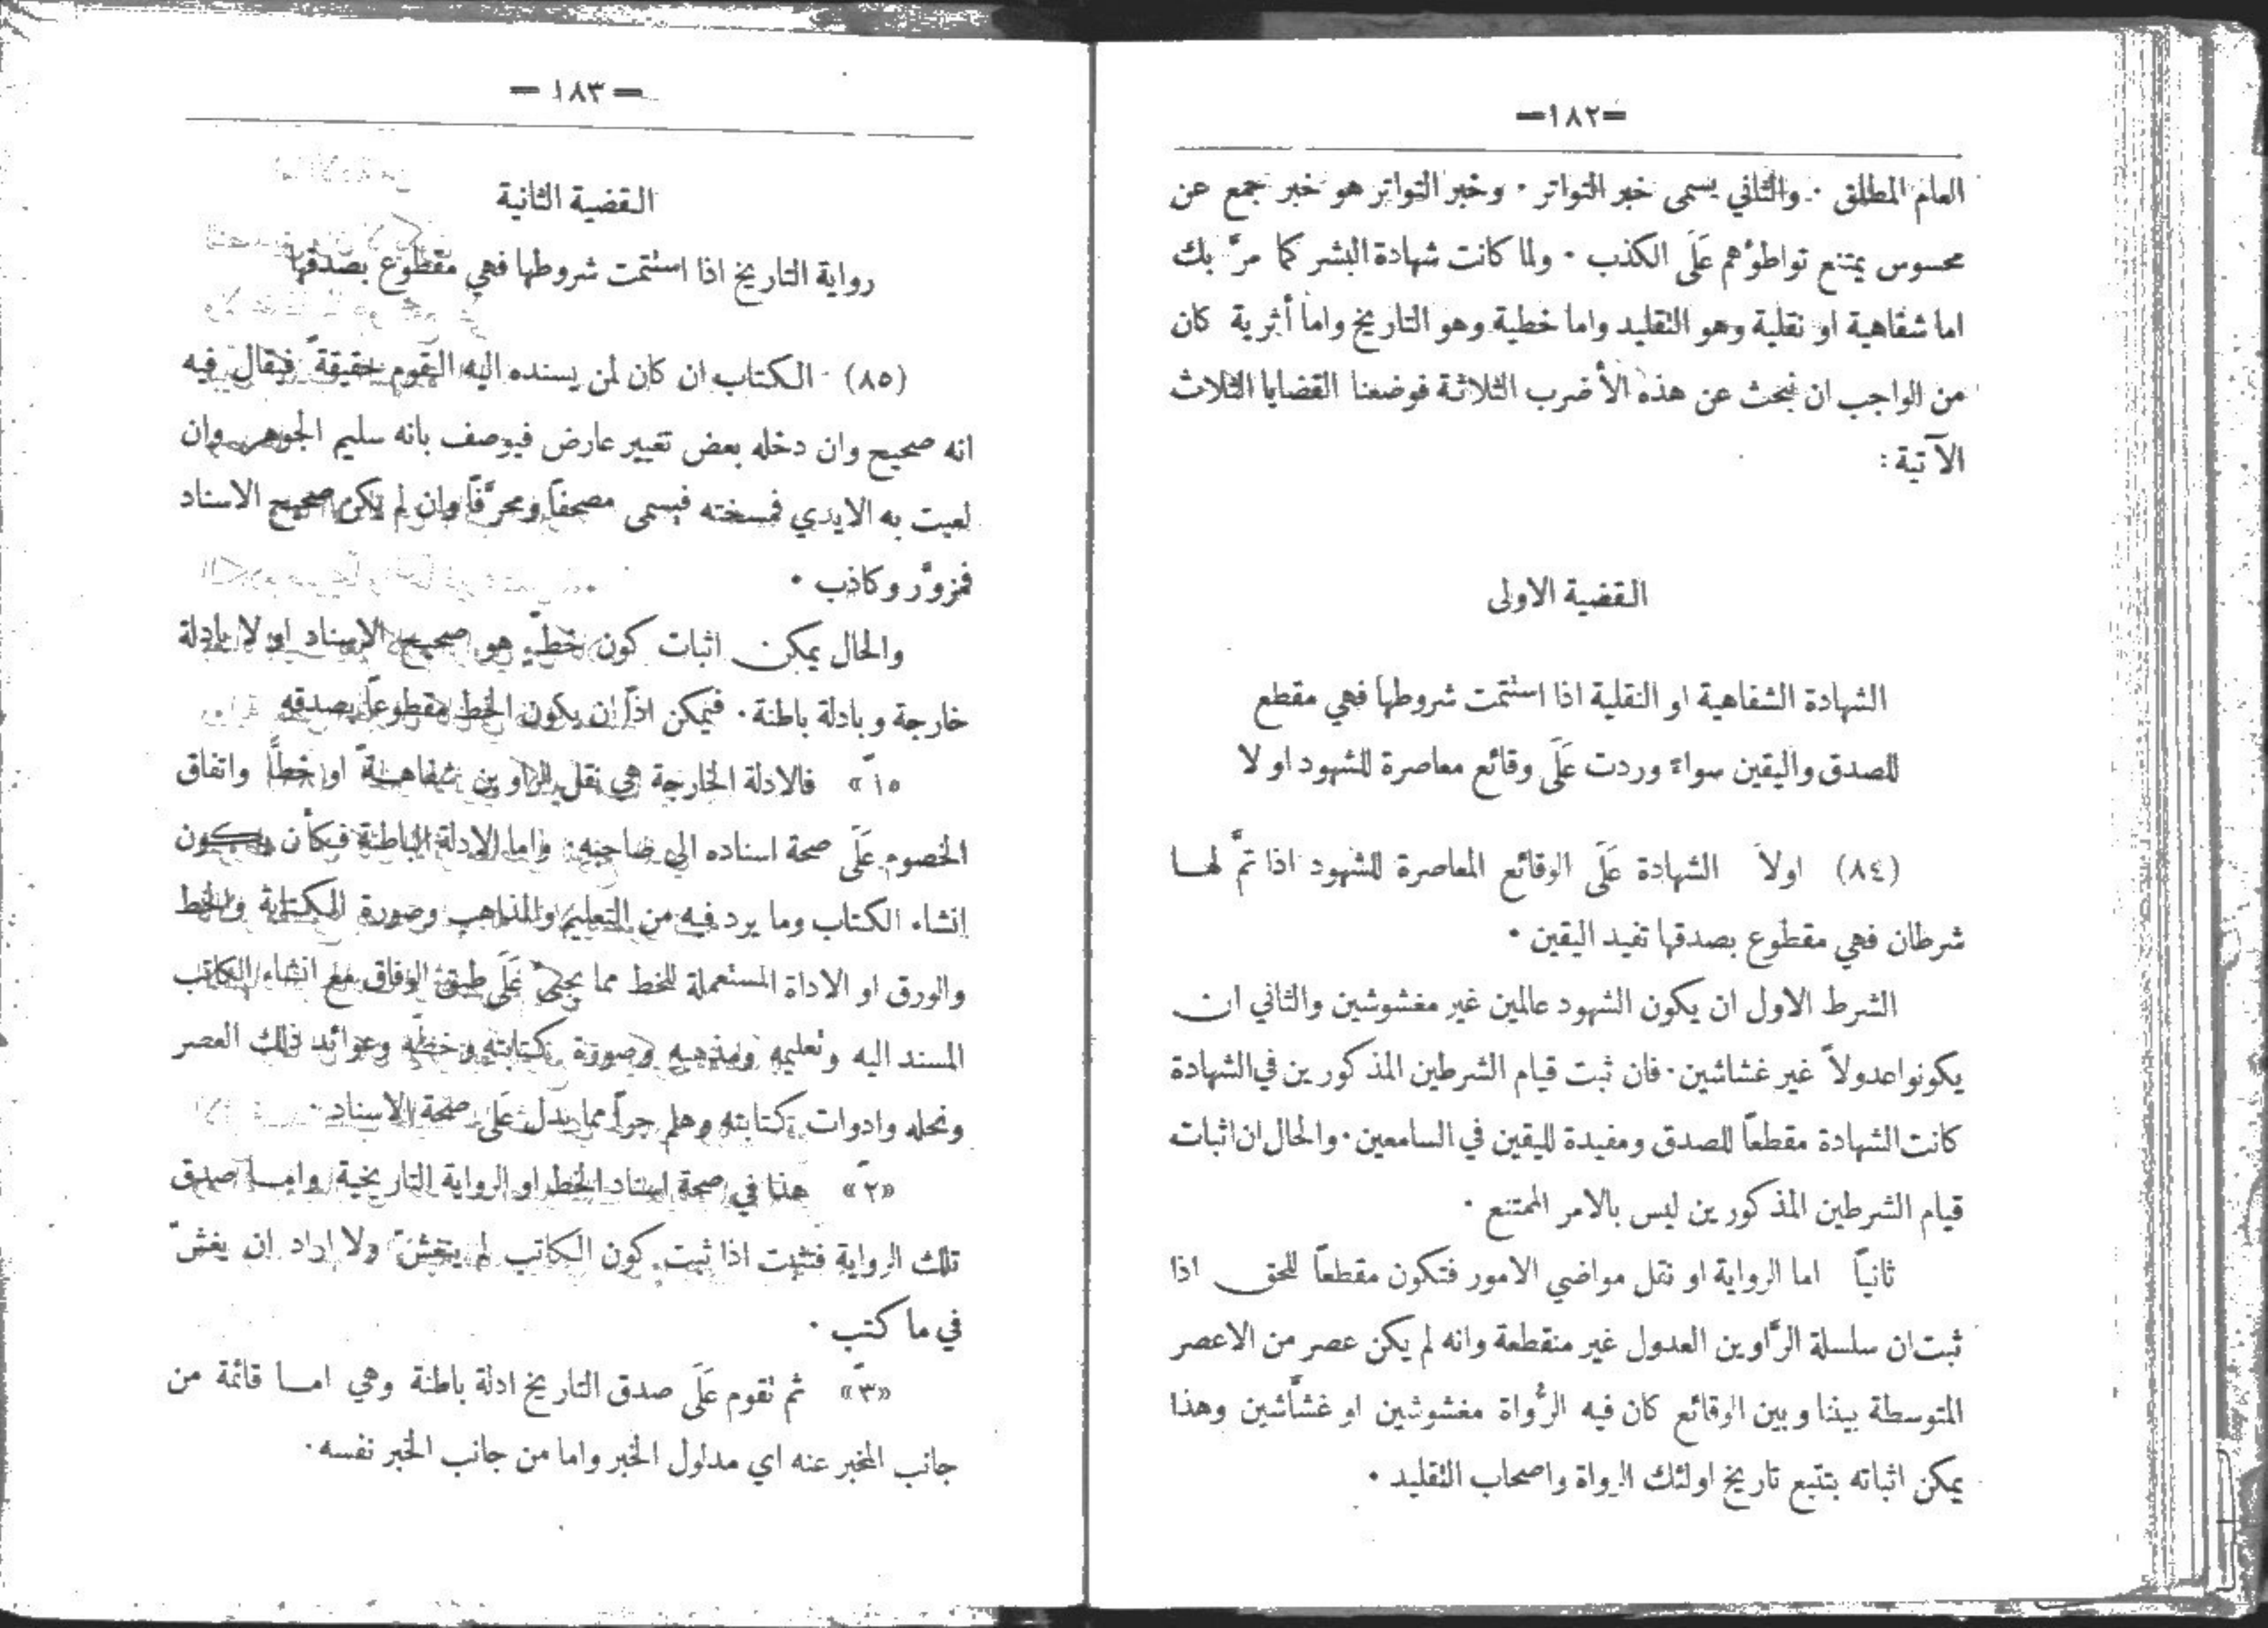 =١٨٢=
العام المطلق . والثاني يسمى خبر التواتر . وخبر التواتر هو خبر جمع عن
محسوس يمتنع تواطؤهم عَلَى الكذب . ولما كانت شهادة البشر كما مرَّ بك
اما شفاهية او نقلية وهو التقليد واما خطية وهو التاريخ واما أثرية كان
من الواجب ان نبحث عن هذه الأضرب الثلاثة فوضعنا القضايا الثلاث
الآتية :
القضية الاولى
الشهادة الشفاهية او النقلية اذا استتمت شروطها فهي مقطع
للصدق واليقين سواء وردت عَلَى وقائع معاصرة للشهود او لا
(٨٤) اولاً الشهادة عَلَى الوقائع المعاصرة للشهود اذا تمَّ لها
شرطان فهي مقطوع بصدقها تفيد اليقين .
الشرط الاول ان يكون الشهود عالمين غير مغشوشين والثاني ان
يكونوا عدولاً غير غشاشين . فان ثبت قيام الشرطين المذكورين في الشهادة
كانت الشهادة مقطعاً للصدق ومفيدة لليقين في السامعين . والحال ان اثبات
قيام الشرطين المذكورين ليس بالامر الممتنع .
ثانياً اما الرواية او نقل مواضي الامور فتكون مقطعاً للحق اذا
ثبت ان سلسلة الرَّاوين العدول غير منقطعة وانه لم يكن عصر من الاعصر
المتوسطة بيننا وبين الوقائع كان فيه الرُّواة مغشوشين او غشَّاشين وهذا
يمكن اثباته بتتبع تاريخ اولئك الرواة واصحاب التقليد .
= ١٨٣ =
القضية الثانية
رواية التاريخ اذا استتمت شروطها فهي مقطوع بصدقها
(٨٥) الكتاب ان كان لمن يسنده اليه القوم حقيقةً فيقال فيه
انه صحيح وان دخله بعض تغيير عارض فيوصف بانه سليم الجوهر وان
لعبت به الايدي فمسخته فيسمى مصحفاً ومحرَّفاً وان لم يكن صحيح الاسناد
فمزوَّر وكاذب .
والحال يمكن اثبات كون خطٍّ هو صحيح الاسناد او لا بادلة
خارجة وبادلة باطنة . فيمكن اذاً ان يكون الخط مقطوعاً بصدقه
«١ً» فالادلة الخارجة هي نقل الراوين شفاهةً او خطًّا واتفاق
الخصوم عَلَى صحة اسناده الى صاحبه . واما الادلة الباطنة فكأن يكون
انشاء الكتاب وما يرد فيه من التعليم والمذاهب وصورة الكتابة والخط
والورق او الاداة المستعملة للخط مما يجيءُ عَلَى طبق الوفاق مع انشاء الكاتب
المسند اليه وتعليمه ومذهبه وصورة كتابته وخطّه وعوائد ذلك العصر
ونحله وادوات كتابته وهلم جراً مما يدل عَلَى صحة الاسناد .
«٢ً» هذا في صحة اسناد الخط او الرواية التاريخية واما صدق
تلك الرواية فثبت اذا ثبت كون الكاتب لم يتغشّ ولا اراد ان يغشّ
في ما كتب .
«٣ً» ثم تقوم عَلَى صدق التاريخ ادلة باطنة وهي اما قائمة من
جانب المخبر عنه اي مدلول الخبر واما من جانب الخبر نفسه .